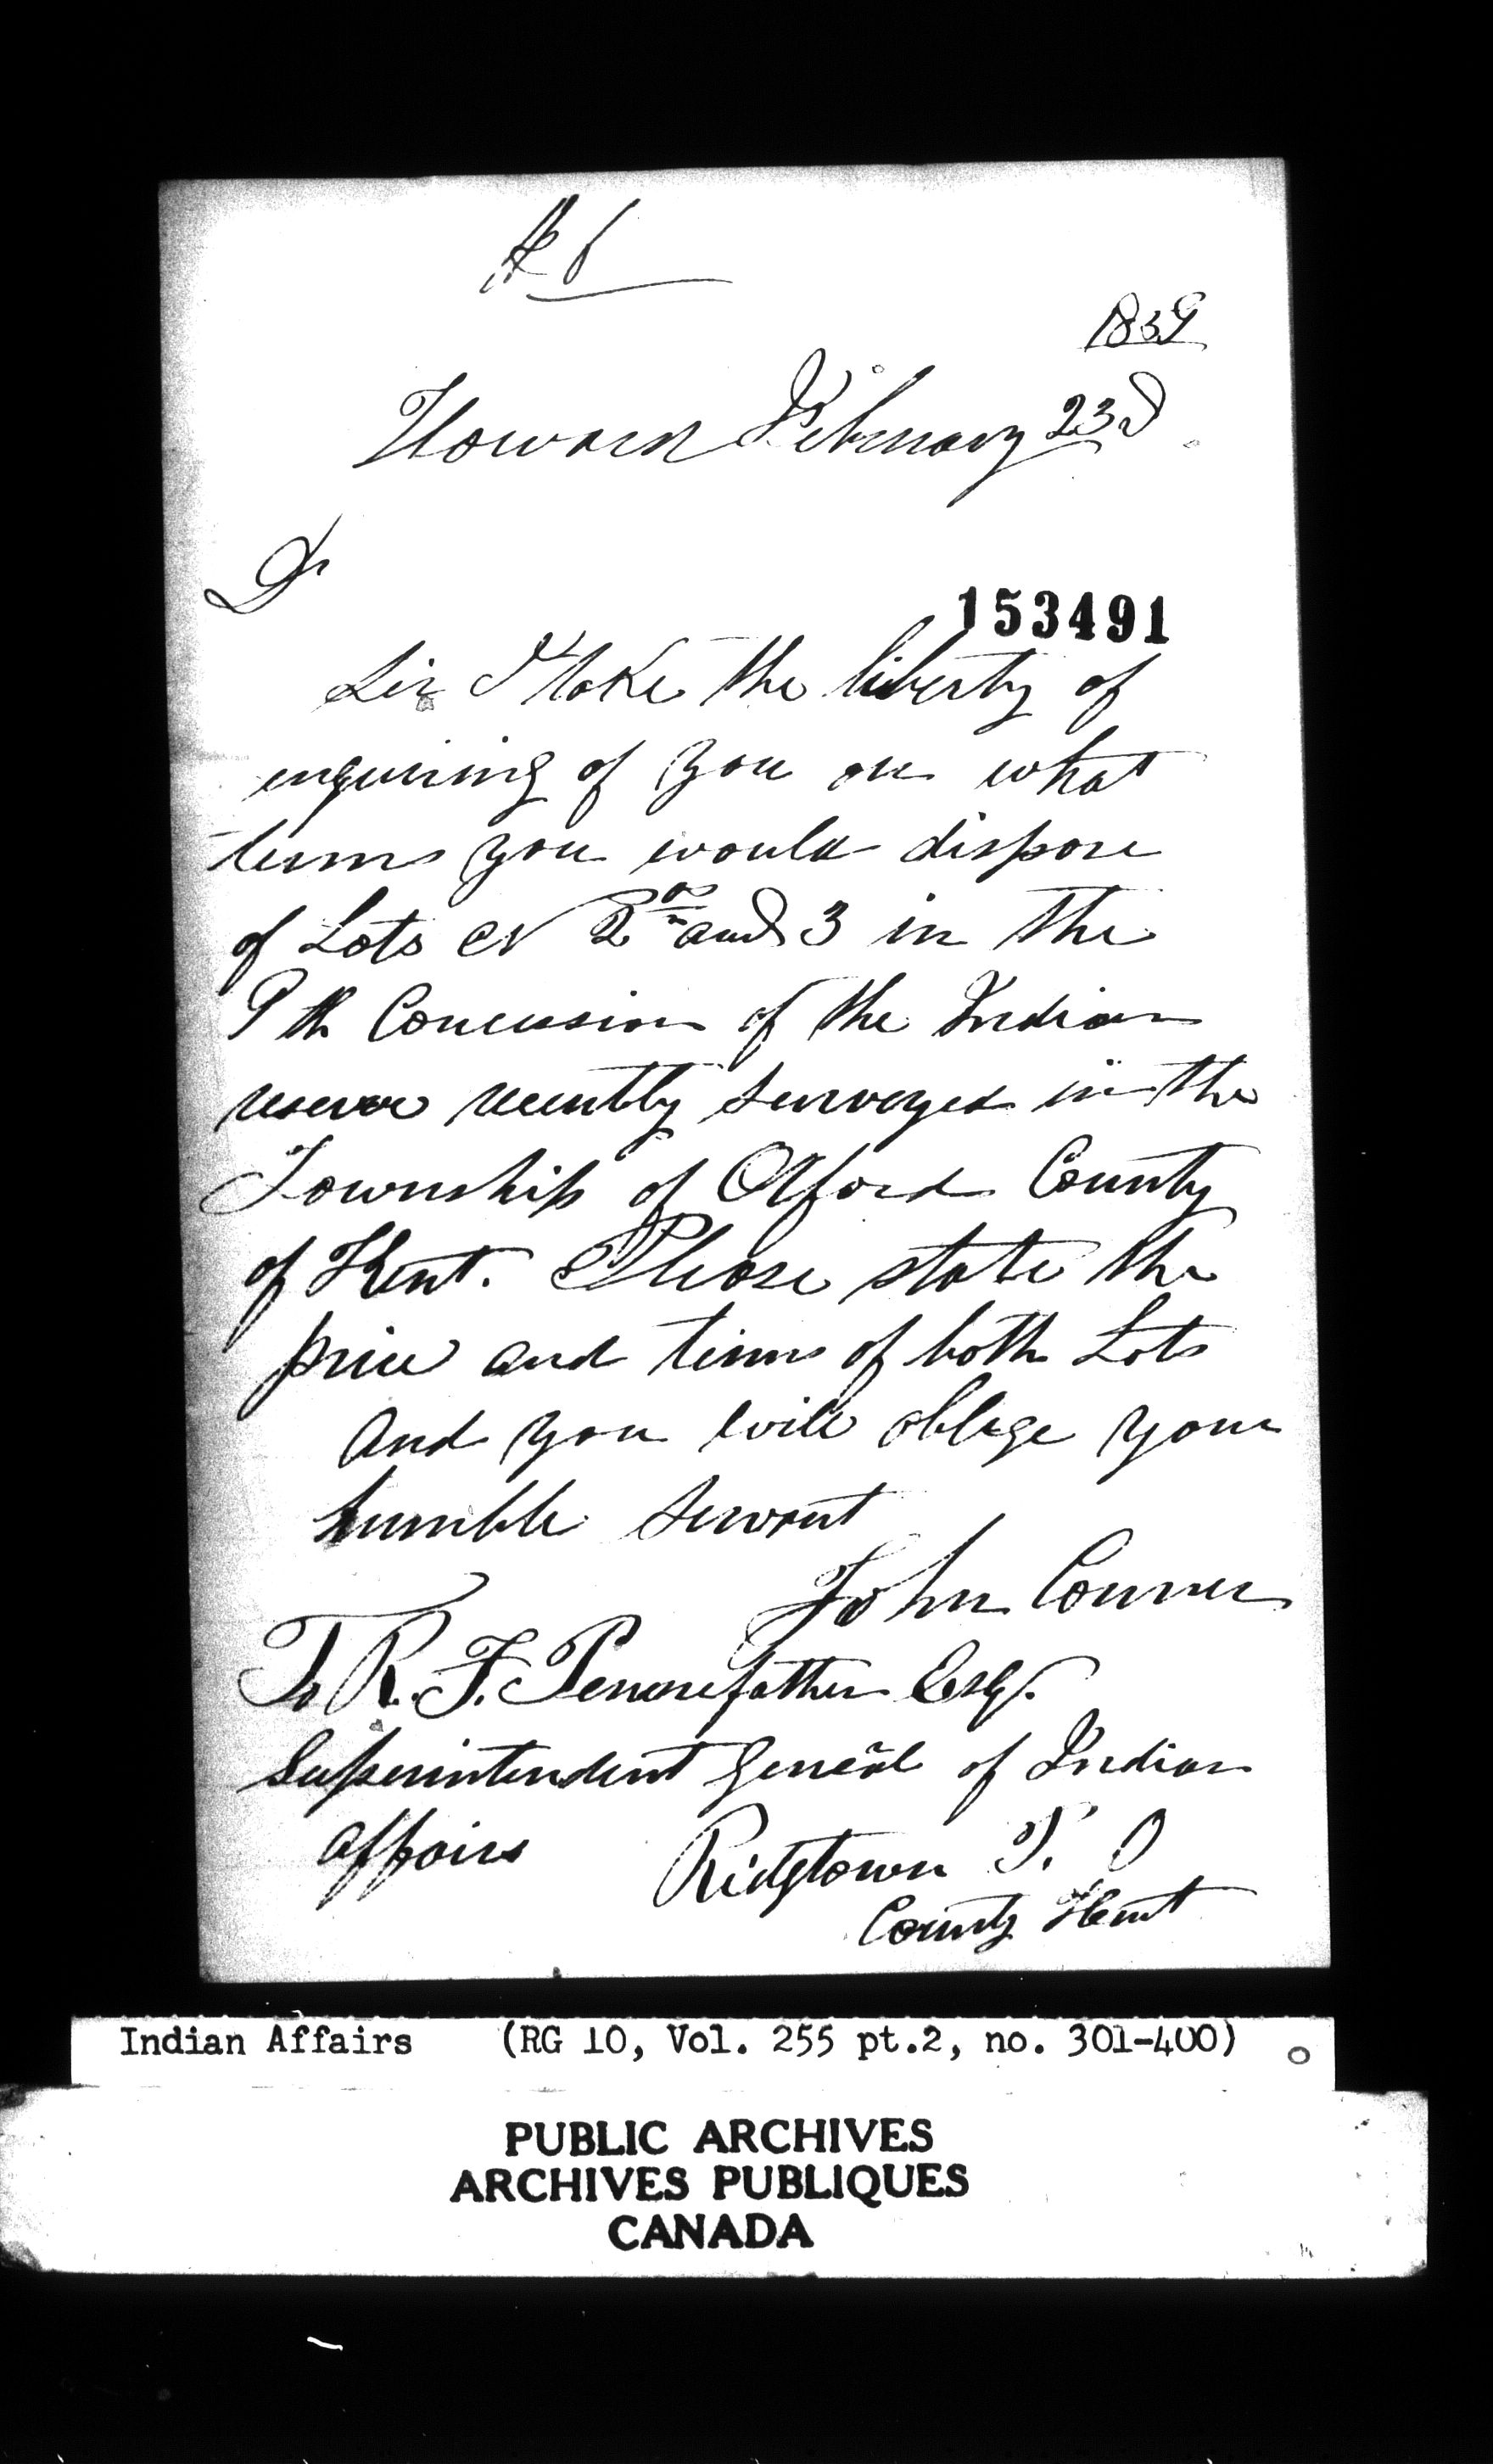 1859
Howard February 23d
Dr
153491
Sir I take the liberty of
enquiring of you on what
terms you would dispose
of Lots N 2 and 3 in the
9th Concession of the Indian
reserve recently surveyed in the
Township of Orford County
of Kent. Please state the
price and terms of both Lots
And you will oblige your
humble servant
John Conner
To R. T. Pennefather Esq.
Superintendent General of Indian
affairs Ridgtown P. O
County Kent
Indian Affairs (RG 10, Vol. 255 pt.2, no. 301-400)
PUBLIC ARCHIVES
ARCHIVES PUBLIQUES
CANADA